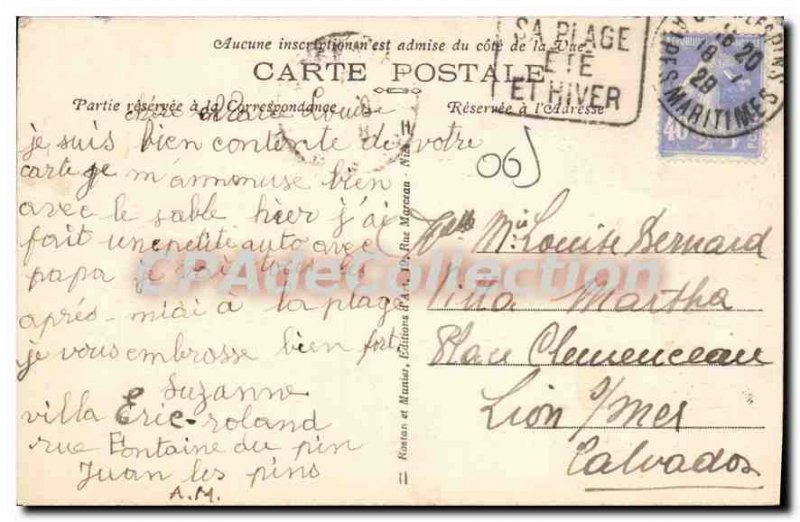 Aucune inscription n'est admise du côté de la Vue
CARTE POSTALE
Partie réservée à la Correspondance
Réservée à l'Adresse
SA PLAGE
ÉTÉ
ET HIVER
18 20
18 1
29
MARITIMES
40
06
chère Marie Louise
je suis bien contente de votre
carte je m'ammuse bien
avec le sable hier j'ai
fait une petite auto avec
papa je vais tous les
après-midi à la plage
je vous embrosse bien fort
Suzanne
villa Eric-roland
rue Fontaine du pin
Juan les pins
A.M.
Rostan et Munier, Éditions d'Art, 19, Rue Marceau - Nice
Mlle Mie Louise Bernard
Villa Martha
Place Clemenceau
Lion s/mer
Calvados
CPAdeCollection